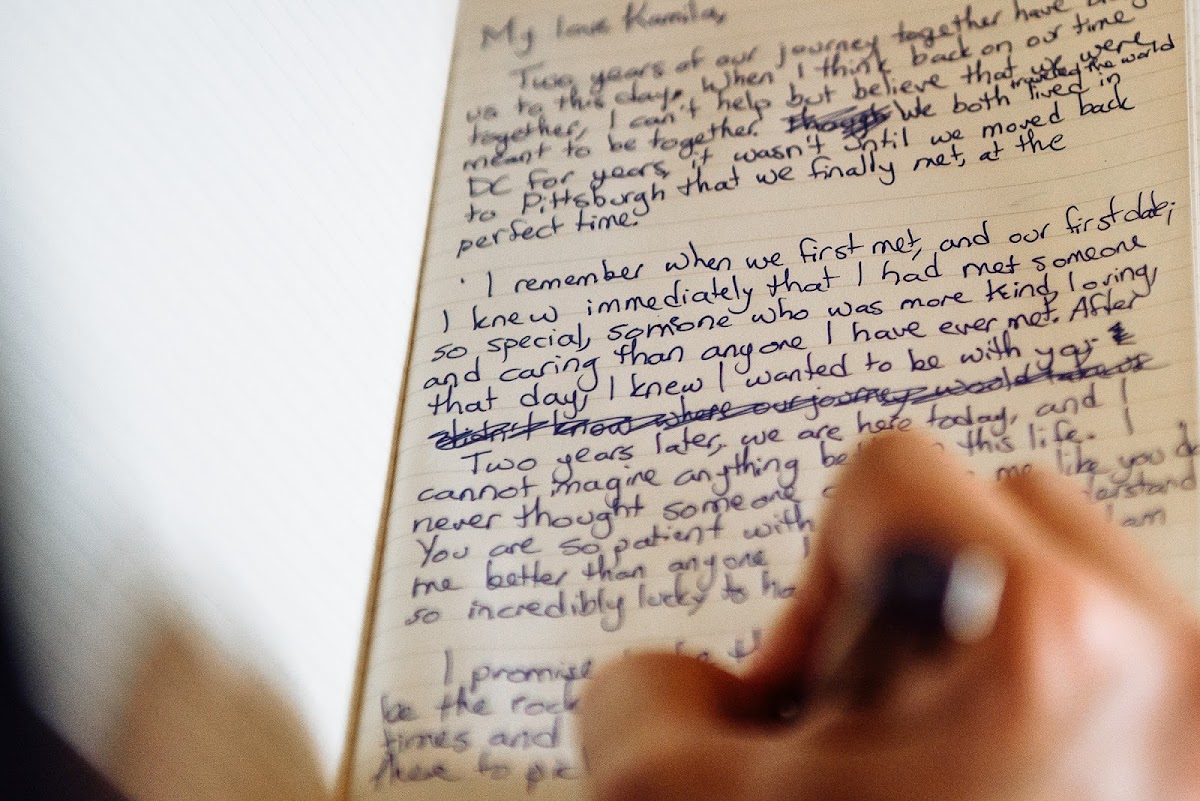 My love Kamila,
Two years of our journey together have
us to this day. When I think back on our time
together, I can't help but believe that we were
meant to be together. We both traveled the world
DC for years, it wasn't until we moved back lived in
to Pittsburgh that we finally met, at the
perfect time.
I remember when we first met, and our first date;
I knew immediately that I had met someone
so special, someone who was more kind, loving,
and caring than anyone I have ever met. After
that day, I knew I wanted to be with you. I
didn't know where our journey would take us
Two years later, we are here today, and I
cannot imagine anything in this life. I
never thought someone me like you do
You are so patient with
me better than anyone I am
so incredibly lucky to
I promise
be the rock
times and
there to